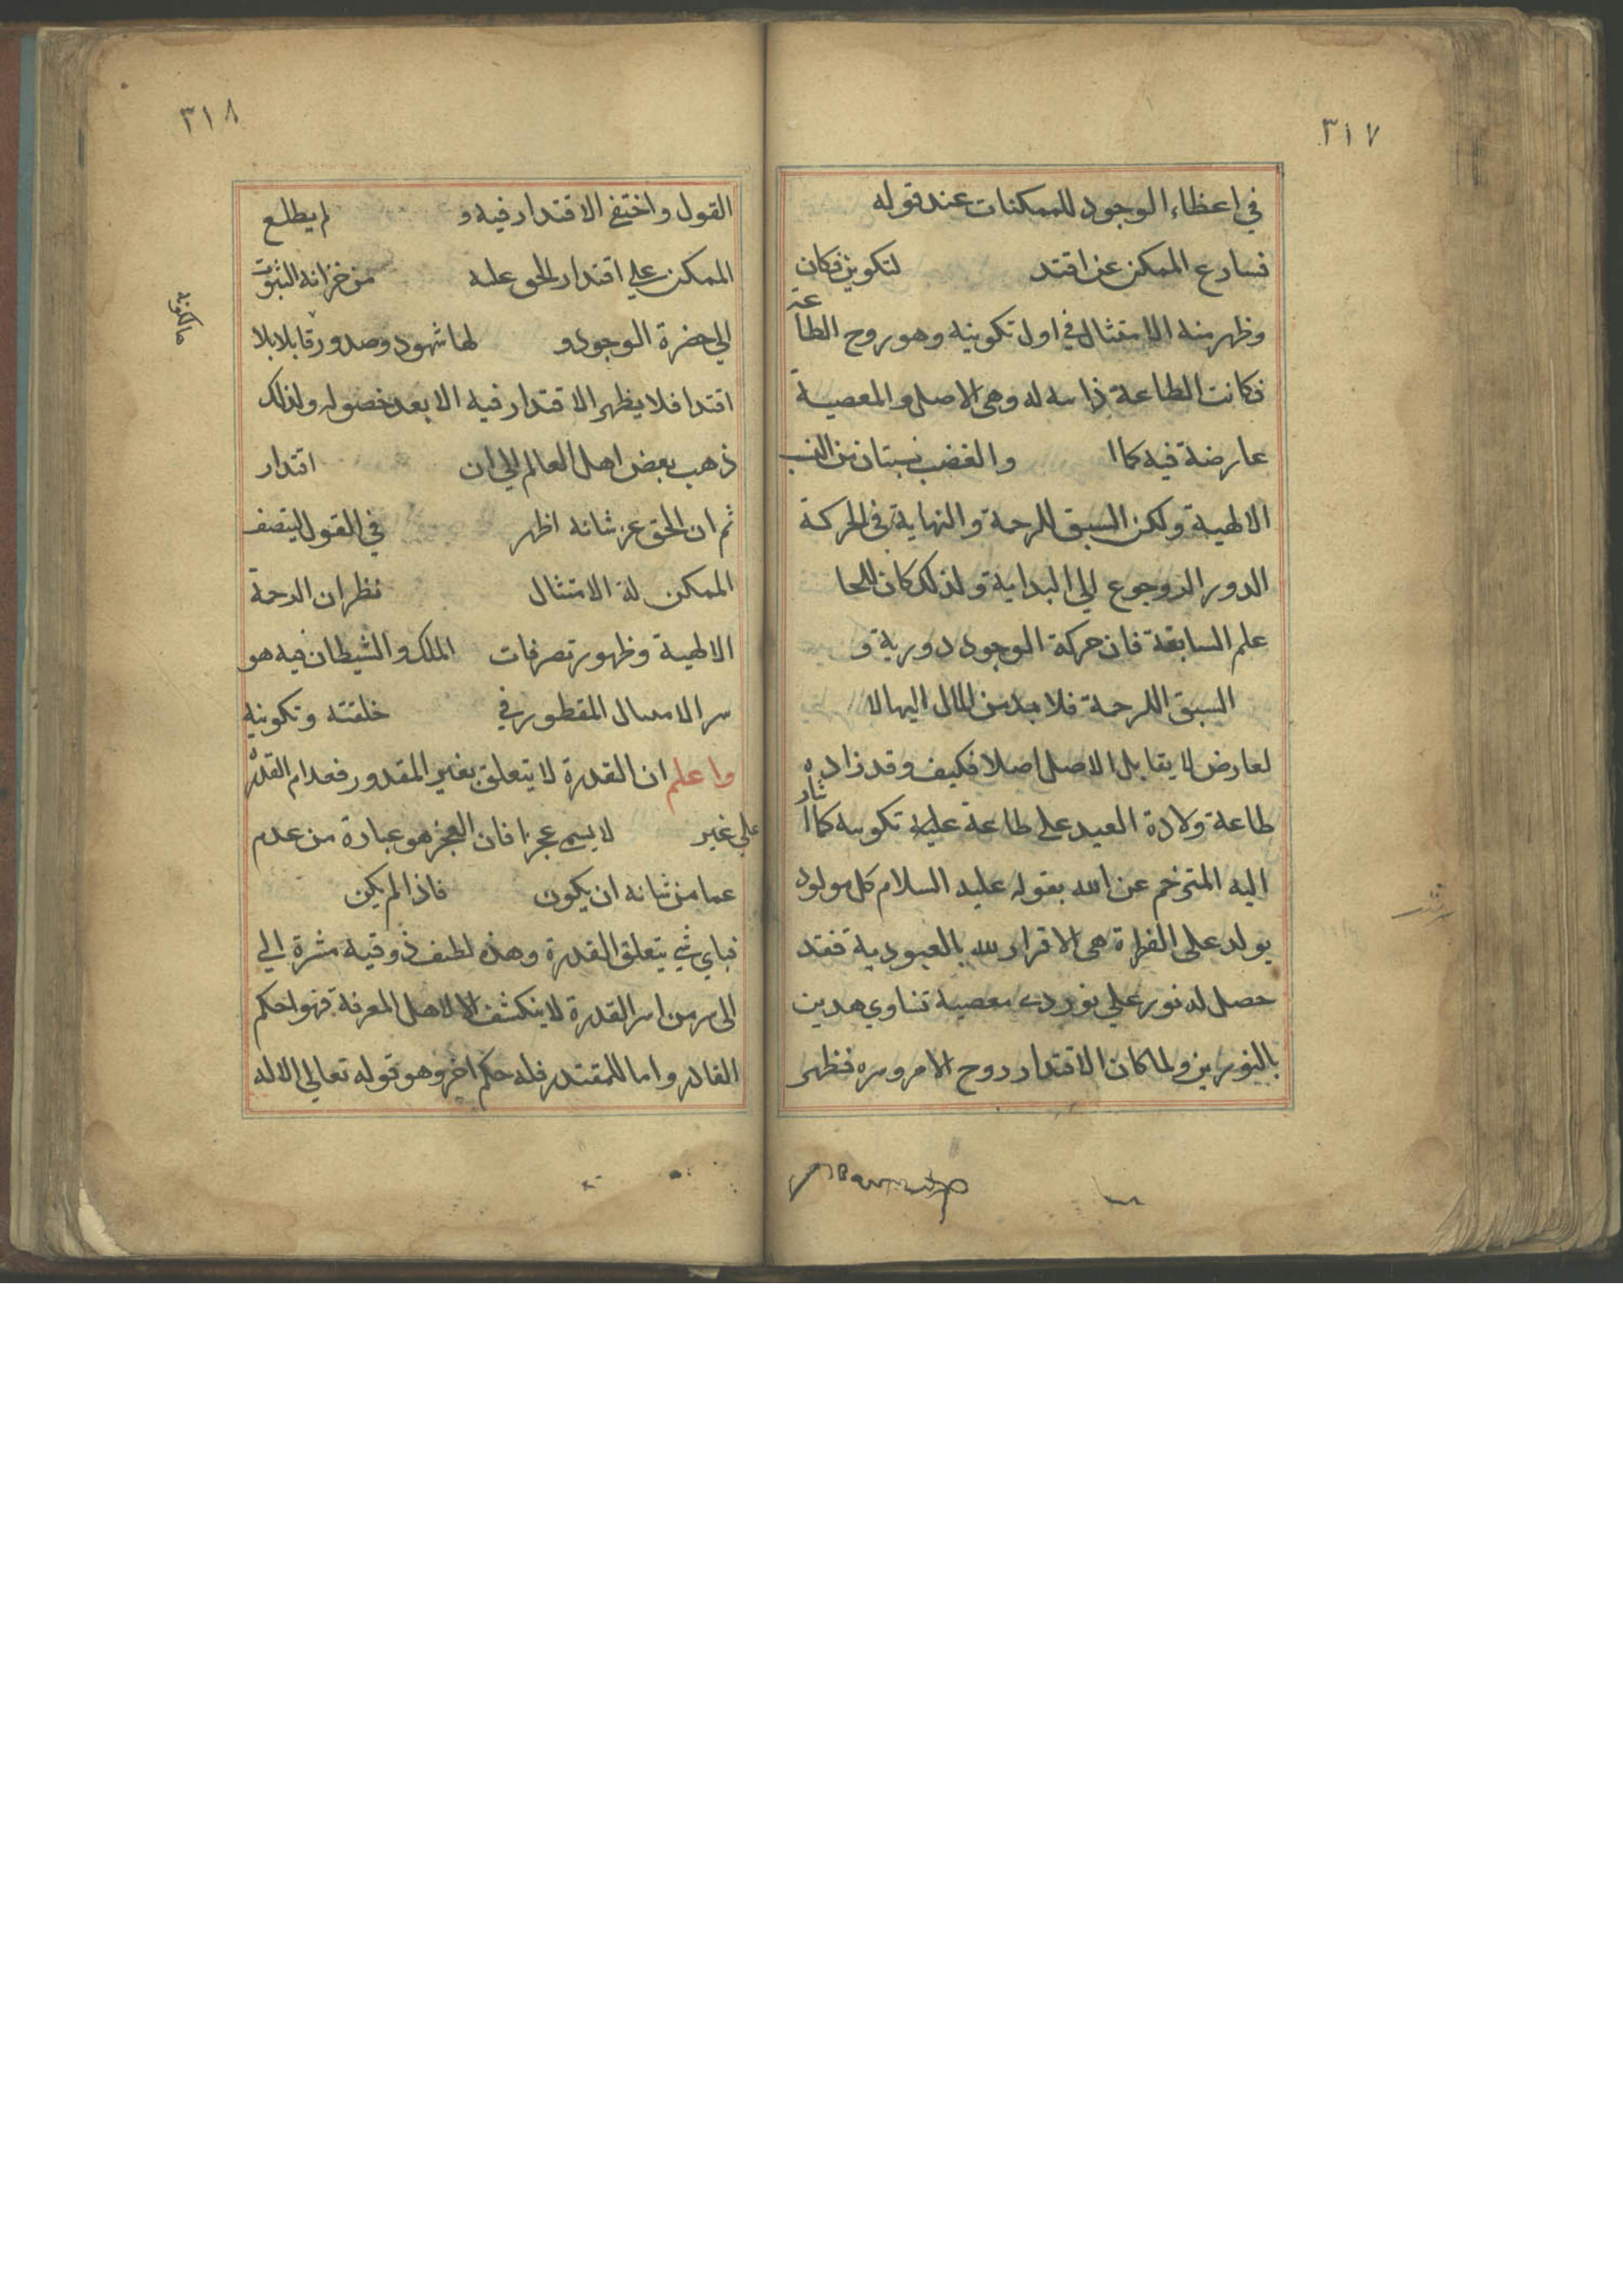 ٣١٧
في اعطاء الوجود للممكنات عند قوله
فسارع الممكن عن اقتد لتكوين فكان
وظهر منه الامتثال في اول تكوينه وهو روح الطاعة
فكانت الطاعة ذاسه له وهى الاصل والمعصية
عارضة فيه كما ا والغضب نسبتان من النب
الالهية ولكن السبق للرحمة والنهاية في الحركة
الدور الروجوع الي البداية ولذلك كان للخا
علم السابقة فان حركة الوجود دورية و
السبق اللرحمة فلا بد من المال اليها لا
لعارض لا يقابل الاصل اصلا فكيف وقد زاده
طاعة ولادة العيد على طاعة عليه تكوسه كما اشار
اليه المترخم عن الله بقوله عليه السلام كل مولود
يولد على الفطرة هى الاقرار لله بالعبودية فقد
حصل له نور علي نور دى معصية تناوي هدين
بالنورين ولما كان الاقتدار روح الامر وسره فظهر
٣١٨
القول واختفي الاقتدار فيه و لم يطلع
الممكن علي اقتدار الحق عله من خزانه الثبوت
الي حضرة الوجود و لها شهود وصدور قابلا بلا
اقتدا فلا يظهر الاقتدار فيه الا بعد حصوله ولذلك
ذهب بعض اهل العالم الي ان اقتدار
ثم ان الحق عز شانه اظهر في القول ليتصف
الممكن لة الامتثال نظران الرحمة
الالهية وظهور تصرفات الملك والشيطان فيه هو
سر الامسال المقطور في خلقته وتكوينه
واعلم ان القدرة لا يتعلق بغير المقدور فعدام القدرة
علي غير لا يسمي عجزا فان العجز هو عبارة من عدم
عما من شانه ان يكون فاذا لم يكن
فباي شي يتعلق القدرة وهذه لطيف ذوقية مشرة الي
الى سر من اسر القدرة لا ينكشف الا لاهل المعرفة فهوا حكم
القادر واما للمقتدر فله حكم اخر وهو قوله تعالي الاله